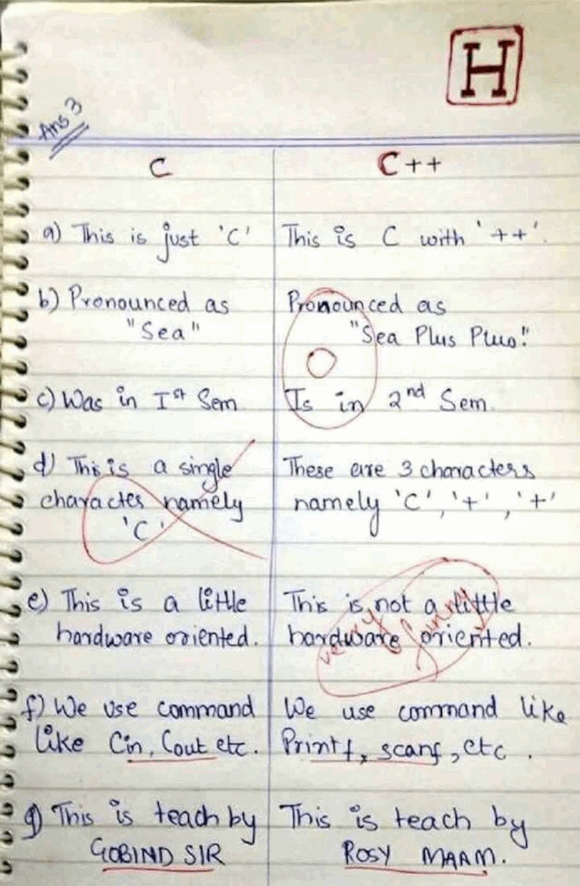 H
Ans 3
C
C++
a) This is just 'C'
This is C with '++'.
b) Pronounced as
"Sea"
Pronounced as
"Sea Plus Plus!"
c) Was in Ist Sem
Is in 2nd Sem.
d) This is a single
character namely
'C'
These are 3 characters
namely 'C', '+', '+'
e) This is a little
hardware oriented.
This is not a little
hardware oriented.
very funny
f) We use command
like Cin, Cout etc.
We use command like
Printf, scanf, etc.
g) This is teach by
GOBIND SIR
This is teach by
ROSY MAAM.